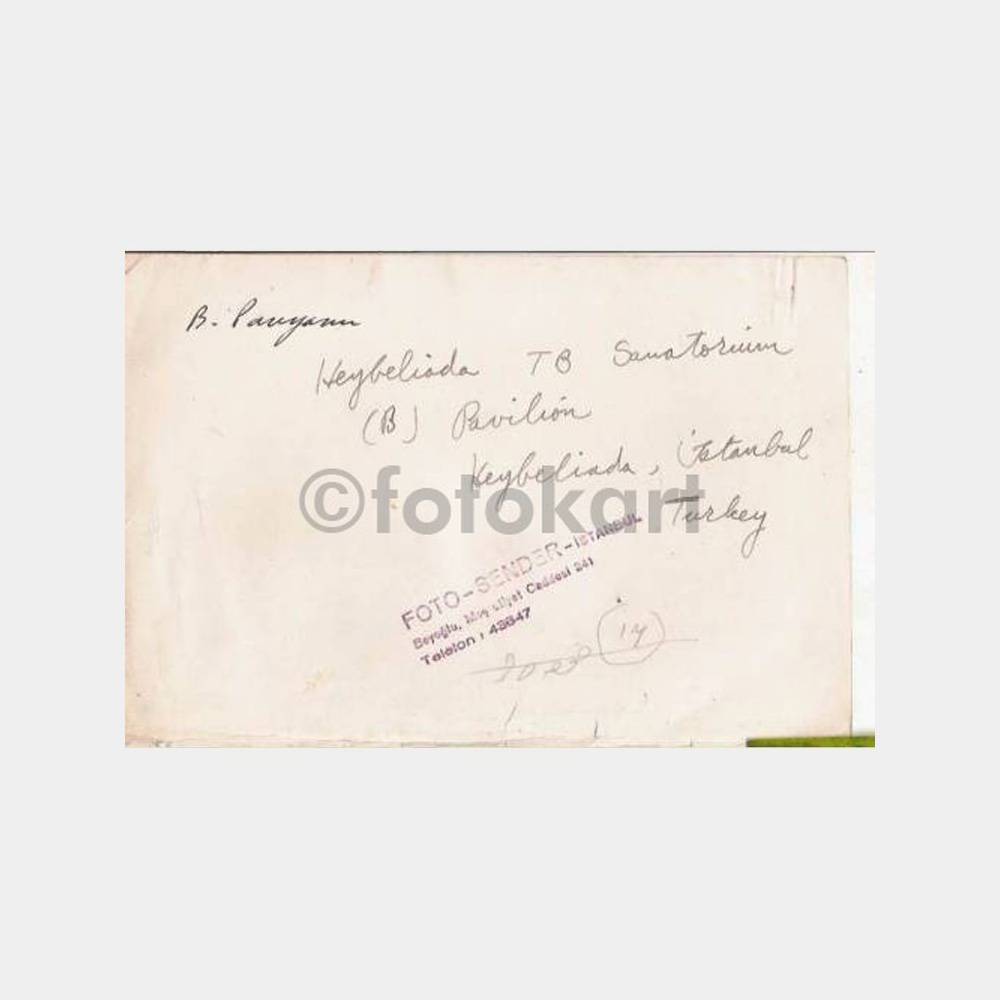 B. Pavyonu
Heybeliada TB Sanatorium
(B) Pavilion
Heybeliada, İstanbul
Turkey
©fotokart
FOTO-SENDER-İSTANBUL
Beyoğlu, Caddesi 241
Telefon : 43647
14